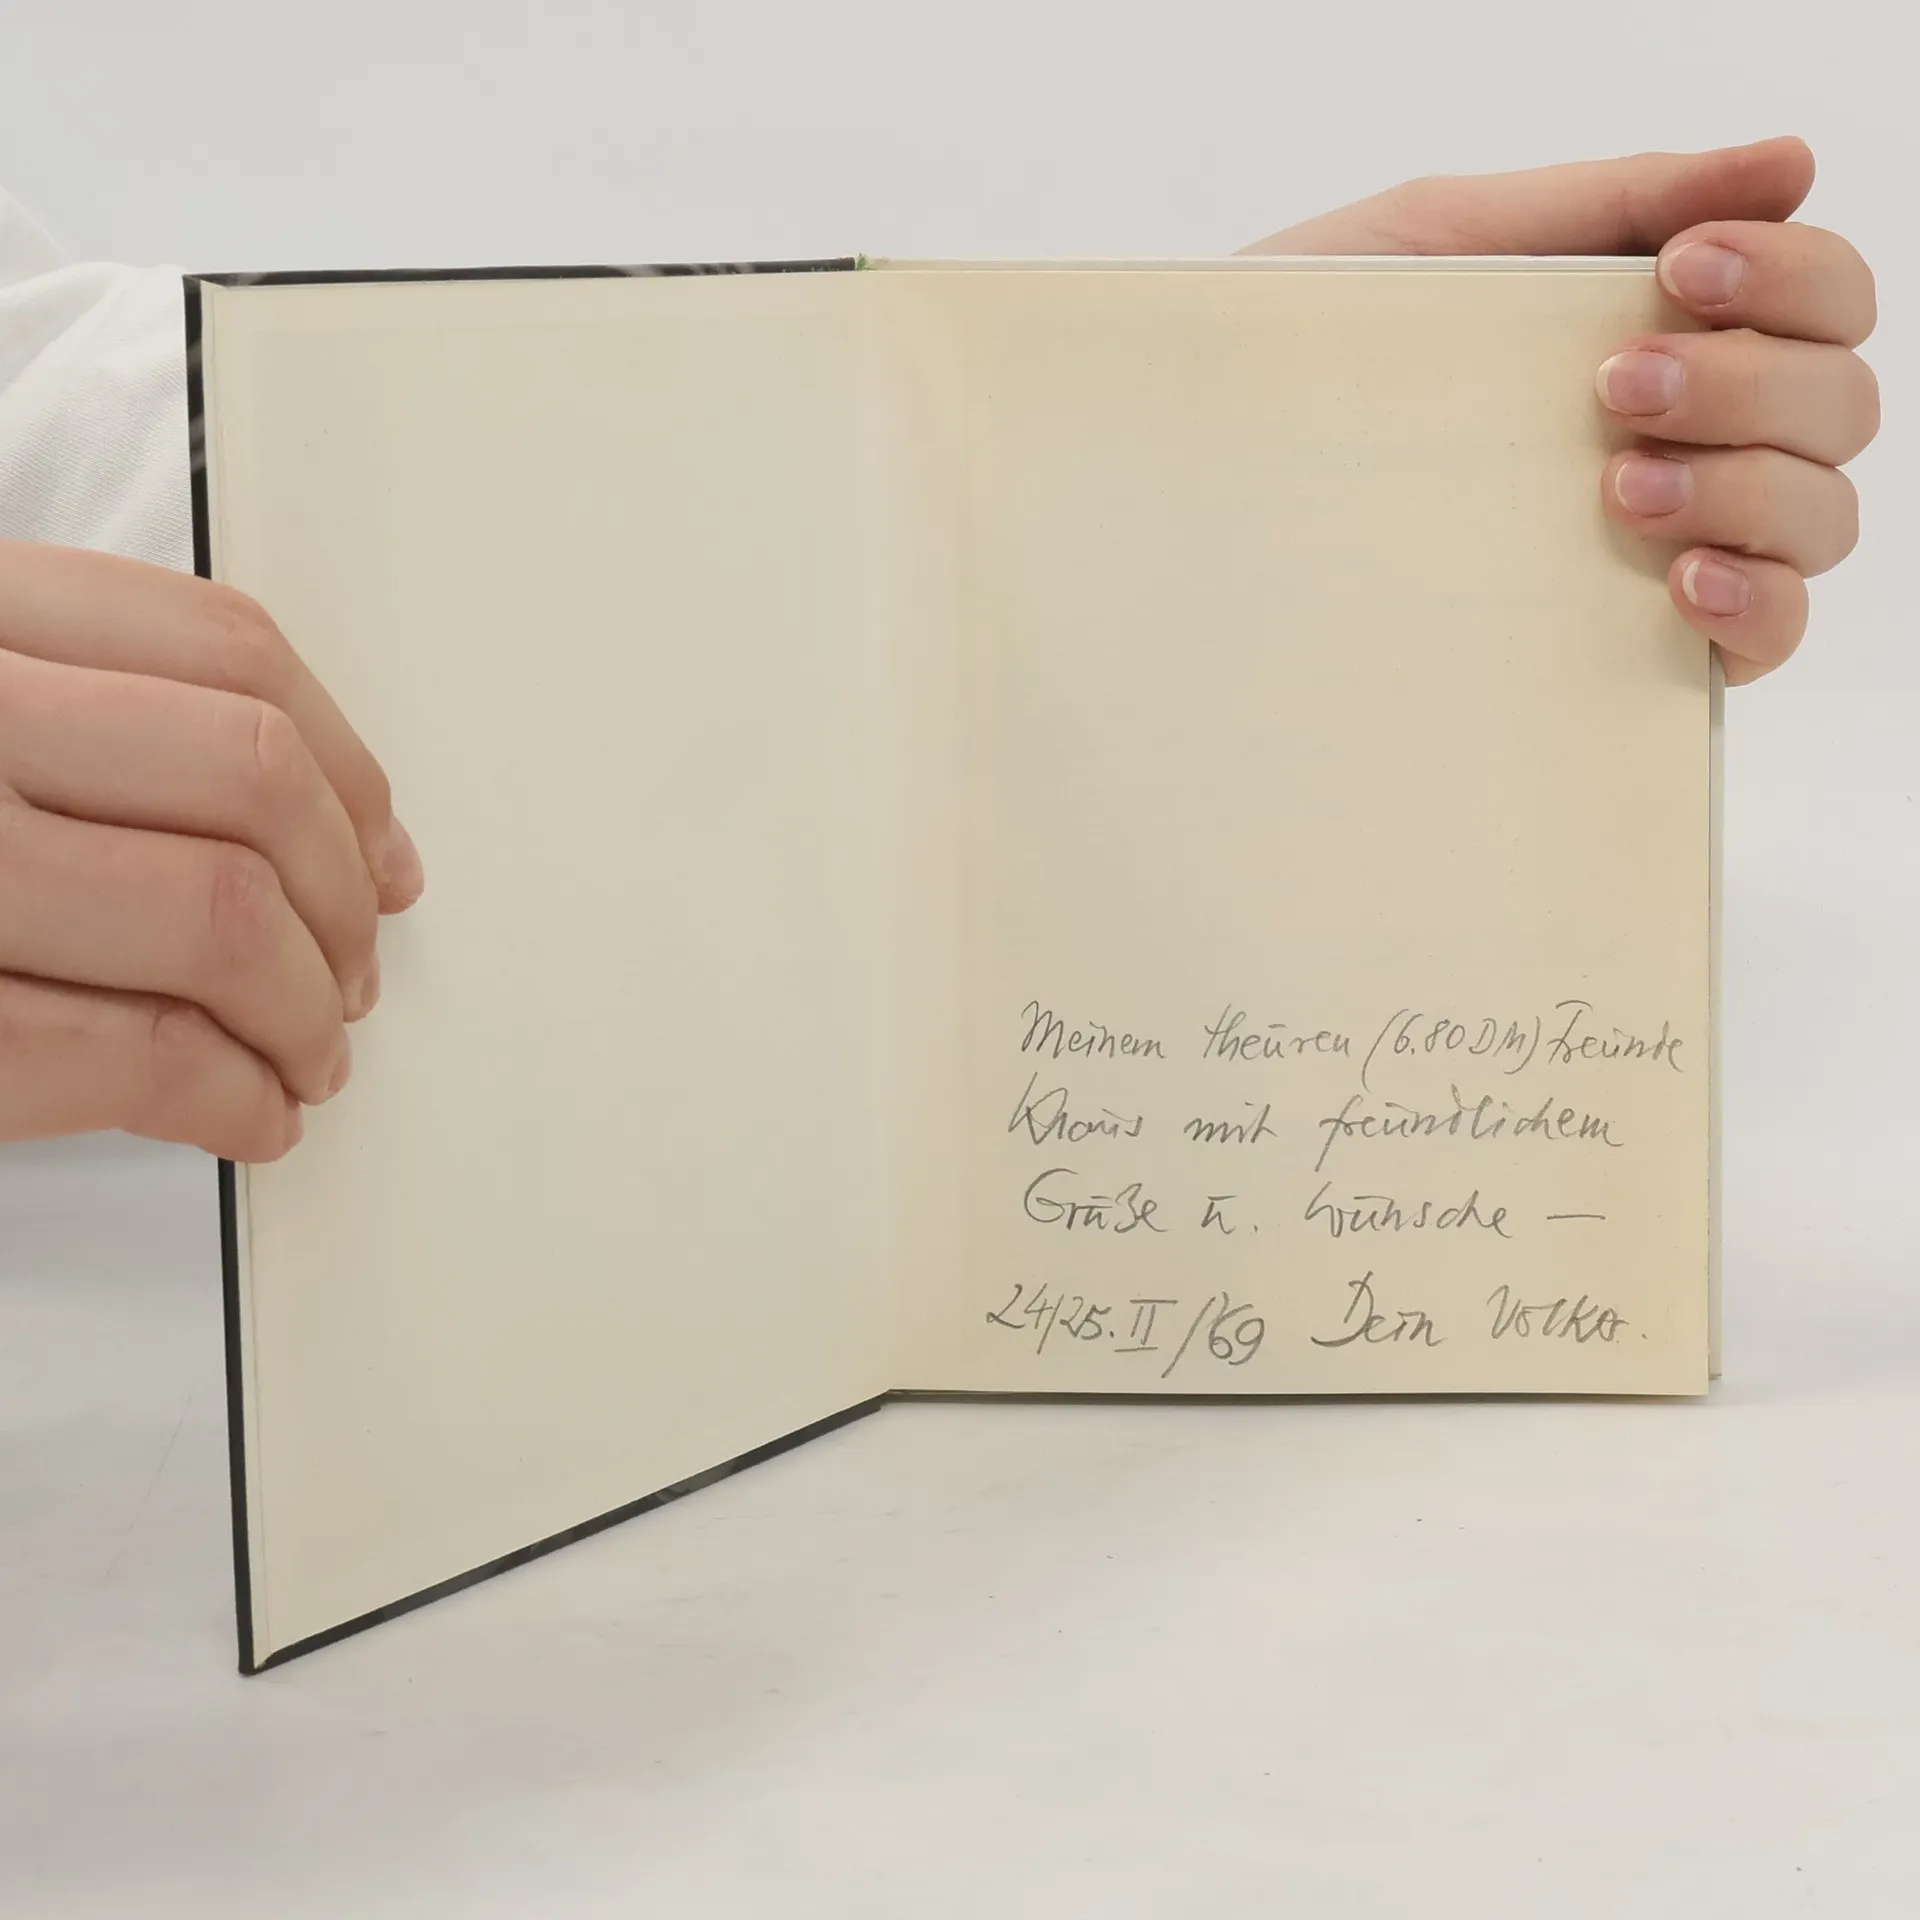 Meinem theuren (6.80 DM) Freunde
Klaus mit freundlichem
Grüße u. Wünsche —
24/25. II / 69 Dein Volker.